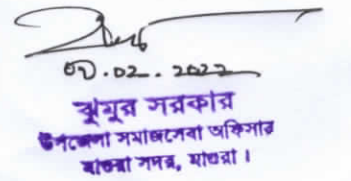 ০৩.০২.২০২২
ঝুমুর সরকার
উপজেলা সমাজসেবা অফিসার
মাগুরা সদর, মাগুরা ।